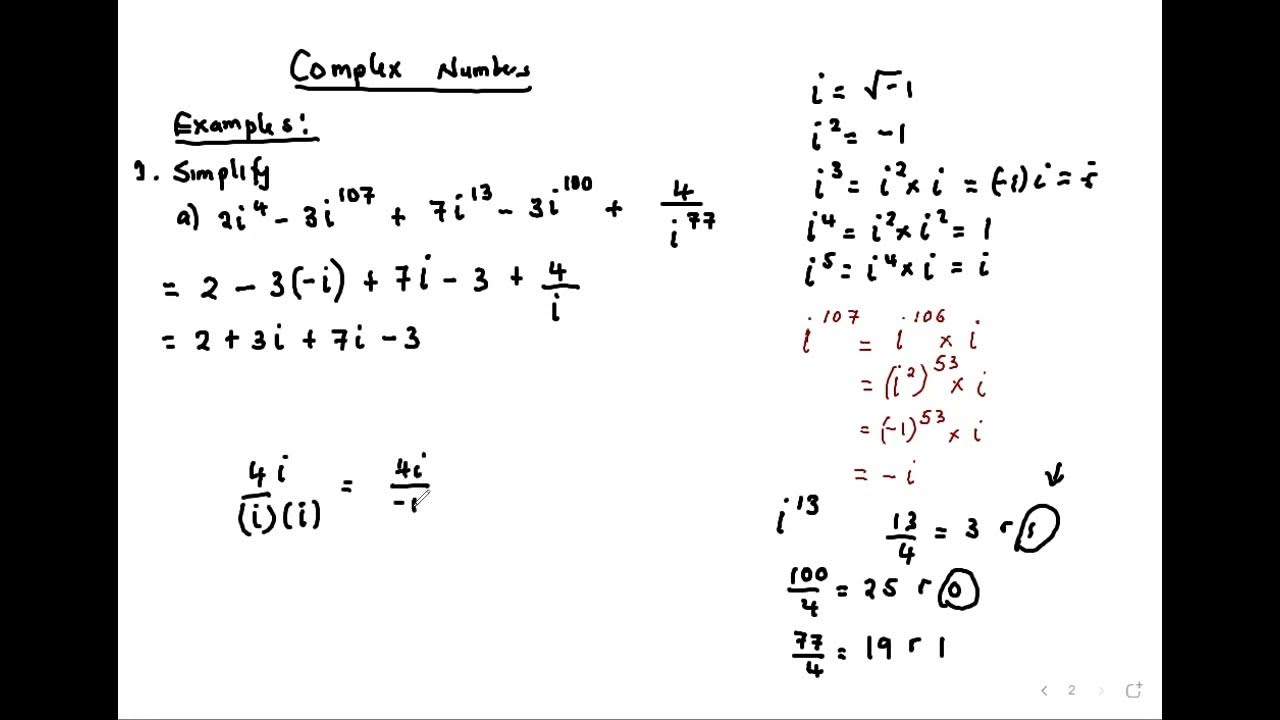 Complex Numbers
Examples:
1. Simplify
a) 2i⁴ - 3i¹⁰⁷ + 7i¹³ - 3i¹⁰⁰ + 4/i⁷⁷
= 2 - 3(-i) + 7i - 3 + 4/i
= 2 + 3i + 7i - 3
4i/(i)(i) = 4i/-1
i = √-1
i² = -1
i³ = i² × i = (-1)i = -i
i⁴ = i² × i² = 1
i⁵ = i⁴ × i = i
i¹⁰⁷ = i¹⁰⁶ × i
= (i²)⁵³ × i
= (-1)⁵³ × i
= -i
i¹³ 13/4 = 3 r 1
100/4 = 25 r 0
77/4 = 19 r 1
2